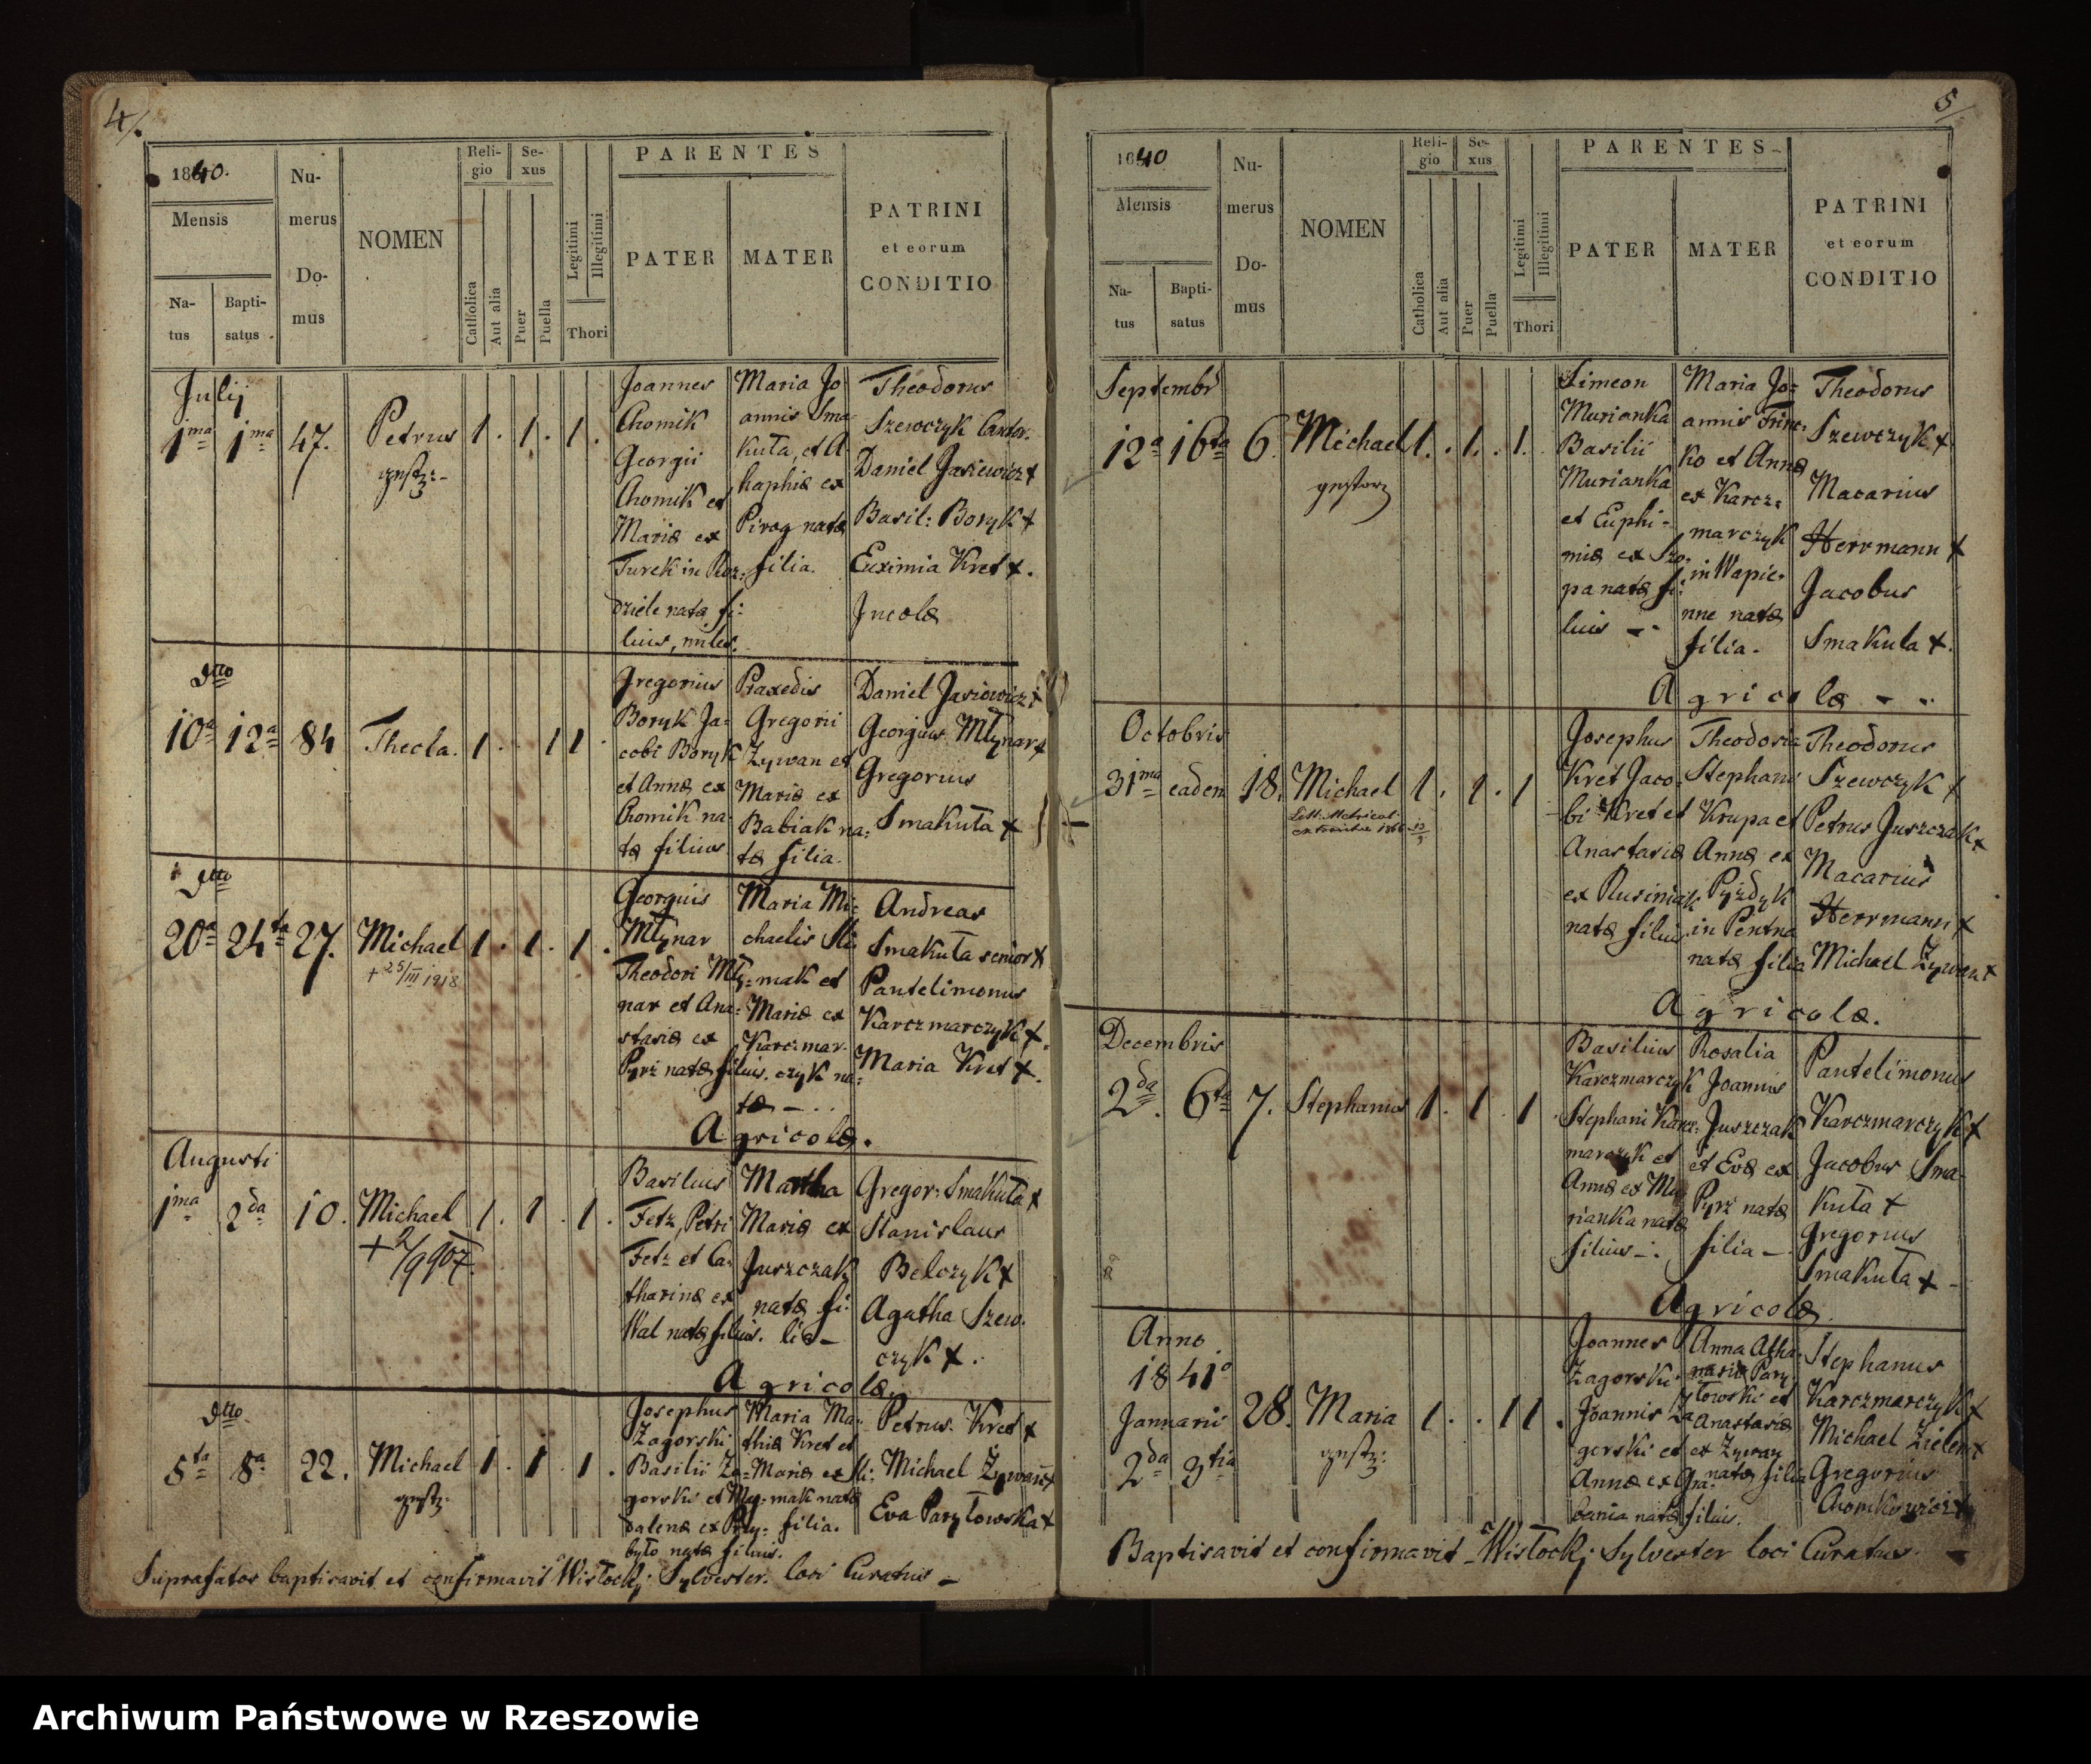 4/.
1840.
Mensis
Na-
tus
Bapti-
satus
Nu-
merus
Do-
mus
NOMEN
Reli-
gio
Catholica
Aut alia
Se-
xus
Puer
Puella
Legitimi
Illegitimi
Thori
PARENTES
PATER
MATER
PATRINI
et eorum
CONDITIO
Julij
1ma 1ma 47. Petrus 1. 1. 1.
Joannes
Chomik
Georgii
Chomik et
Mariæ ex
Turek in Roz:
dziele natæ fi:
lius, miles.
Maria Jo
annis Sma
kuła, et A
haphiæ ex
Pirog natæ
filia.
Theodorus
Szewczyk Cantor.
Daniel Jasiewicz +
Basil: Boryk +
Euximia Kret +.
Incolæ
dtto
10a 12a 84 Thecla. 1. 1 1.
Gregorius
Boryk Ja=
cobi Boryk
et Annæ ex
Chomik na
tæ filius
Praxedis
Gregorii
Zywan et
Mariæ ex
Babiak na:
tæ filia.
Daniel Jasiewicz +
Georgius Młynar +
Gregorius
Smakuła +
dtto
20a 24ta 27. Michael 1. 1. 1.
+ 25/III 1918
Georgius
Młynar
Theodori Mły:
nar et Ana:
stasiæ ex
Pyrz natæ filius.
Maria Mi:
chaelis Kli
mak et
Mariæ ex
Karczmar-
czyk na:
tæ - . .
Andreas
Smakuła senior +
Pantelimonus
Karczmarczyk +.
Maria Kret +.
Agricolæ.
Augusti
1ma 2da 10. Michael 1. 1. 1.
+ 2/9 907.
Basilius
Fetz, Petri
Fetz et Ca:
tharinæ ex
Wal natæ filius.
Martha
Mariæ ex
Juszczak
natæ fi:
lia -
Gregor: Smakuła +
Stanislaus
Belczyk +
Agatha Szew.
czyk +.
Agricolæ.
dtto.
5ta 8a 22. Michael 1. 1. 1.
Josephus
Zagorski,
Basilii Za=
gorski et Mag:
dalenæ ex Przy:
było natæ filius.
Maria Ma:
thiæ Kret et
Mariæ ex Kli:
mak natæ
filia.
Petrus Kret +
Michael Żywan +
Eva Paryłowska +
Suprafatos baptisavit et confirmavit Wisłocki Sylvester. loci Curatus -
5/
1840
Mensis
Na-
tus
Bapti-
satus
Nu-
merus
Do-
mus
NOMEN
Reli-
gio
Catholica
Aut alia
Se-
xus
Puer
Puella
Legitimi
Illegitimi
Thori
PARENTES
PATER
MATER
PATRINI
et eorum
CONDITIO
Septembr
12a 16ta 6. Michael 1. 1. 1.
Simeon
Murianka
Basilii
Murianka
et Euphi-
miæ ex Szo:
pa natæ fi:
lius - .
Maria Jo=
annis
ko et Annæ
ex Karcz=
marczyk
in Wapie=
nne natæ
filia.
Theodorus
Szewczyk +
Macarius
Herrmann +
Jacobus
Smakuła +.
Agricolæ - . .
Octobris
31ma eadem 18. Michael 1. 1. 1
Josephus
Kret Jaco
bi Kret et
Anastasiæ
ex Rusiniak
natæ filius
Theodosia
Stephani
Krupa et
Annæ ex
Pyżdyk
in Pentna
natæ filia
Theodorus
Szewczyk +
Petrus Juszczak +
Macarius
Herrmann +
Michael Zywan +
Agricolæ.
Decembris
2da. 6ta 7. Stephanus 1. 1. 1.
Basilius
Karczmarczyk
Stephani Karcz:
marczyk et
Annæ ex Mu
rianka natæ
filius - .
Rosalia
Joannis
Juszczak
et Evæ ex
Pyrz natæ
filia - .
Pantelimonus
Karczmarczyk +
Jacobus Sma-
kuła +
Gregorius
Smakuła + -
Agricolæ
Anno
1841o
Januarii
2da 3tia 28. Maria 1. . 1 1.
Joannes
Zagorski
Joannis Za
gorski et
Annæ ex Gra:
bania natæ filius.
Anna Atha
nasii Pary
łowski et
Anastasiæ
ex Zywan
natæ filia
Stephanus
Karczmarczyk +
Michael Zielen +
Gregorius
Chomkowicz +
Baptisavit et confirmavit - Wisłocki Sylvester loci Curatus. -
Archiwum Państwowe w Rzeszowie